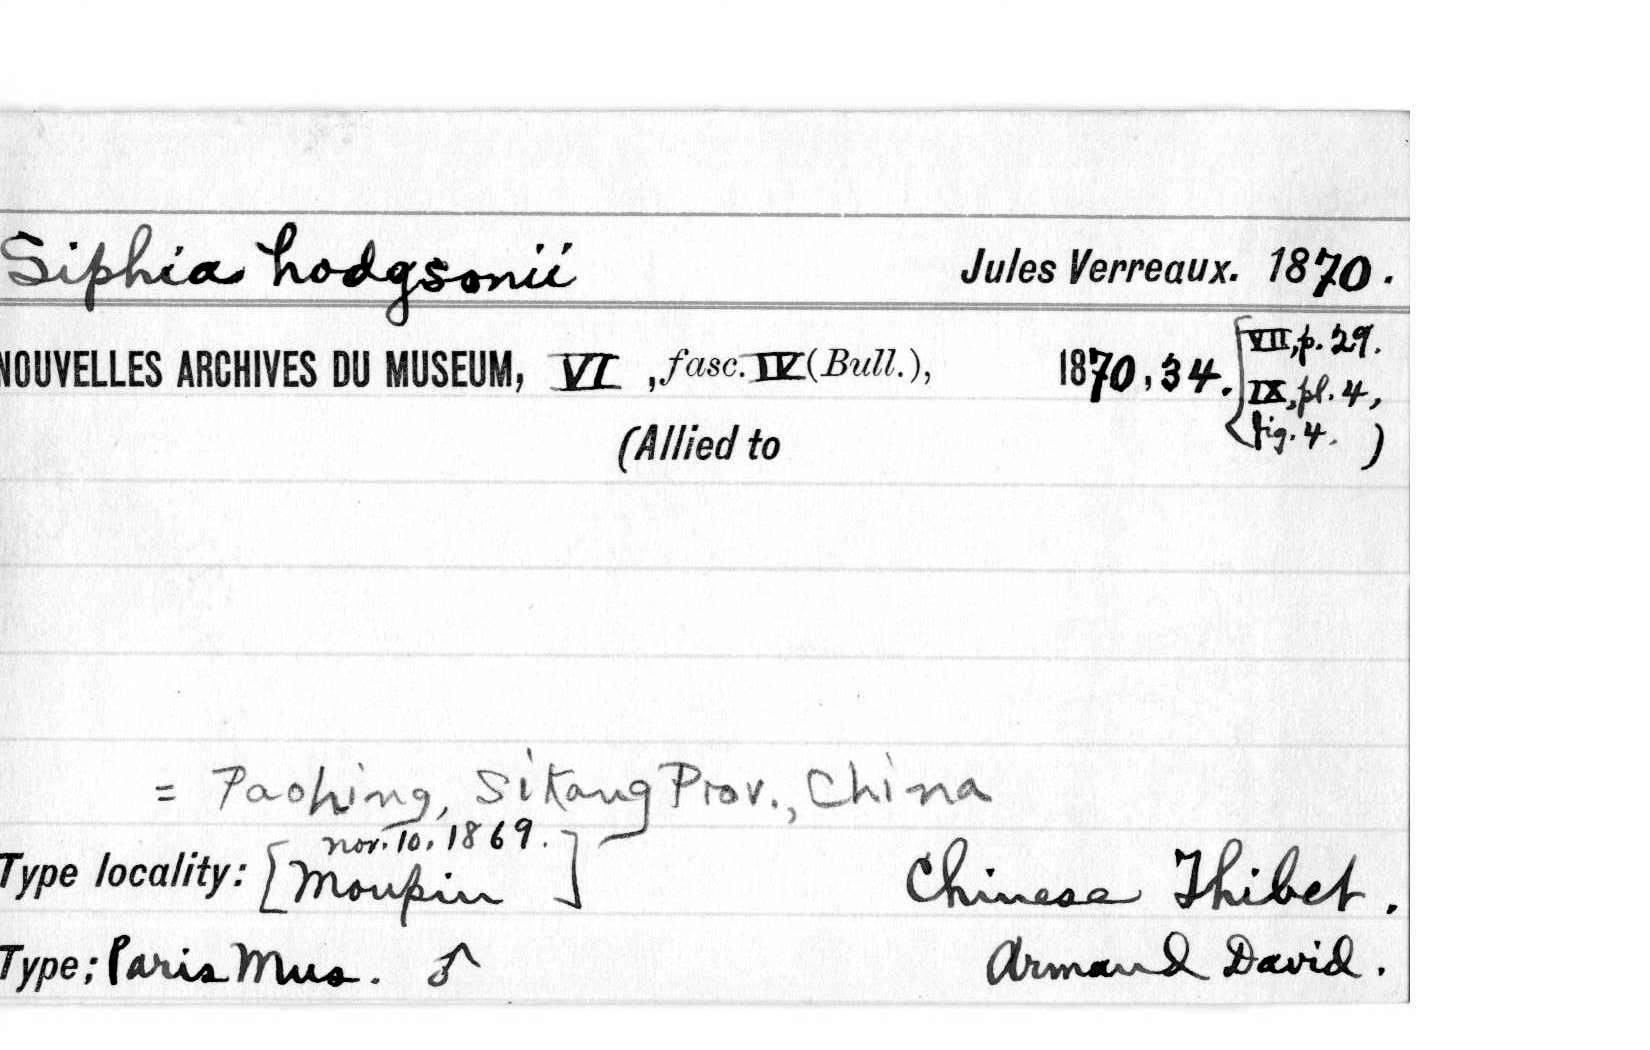 Siphia hodgsonii Jules Verreaux. 1870.
NOUVELLES ARCHIVES DU MUSEUM, VI, fasc. IV (Bull.), 1870, 34. [VII, p. 29.
IX, pl. 4,
fig. 4. )
(Allied to
= Paohing, Sikang Prov., China
nov. 10, 1869.
Type locality: [Moupin] Chinese Thibet.
Type; Paris Mus. ♂ Armand David.